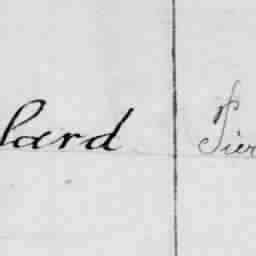 lard Pier